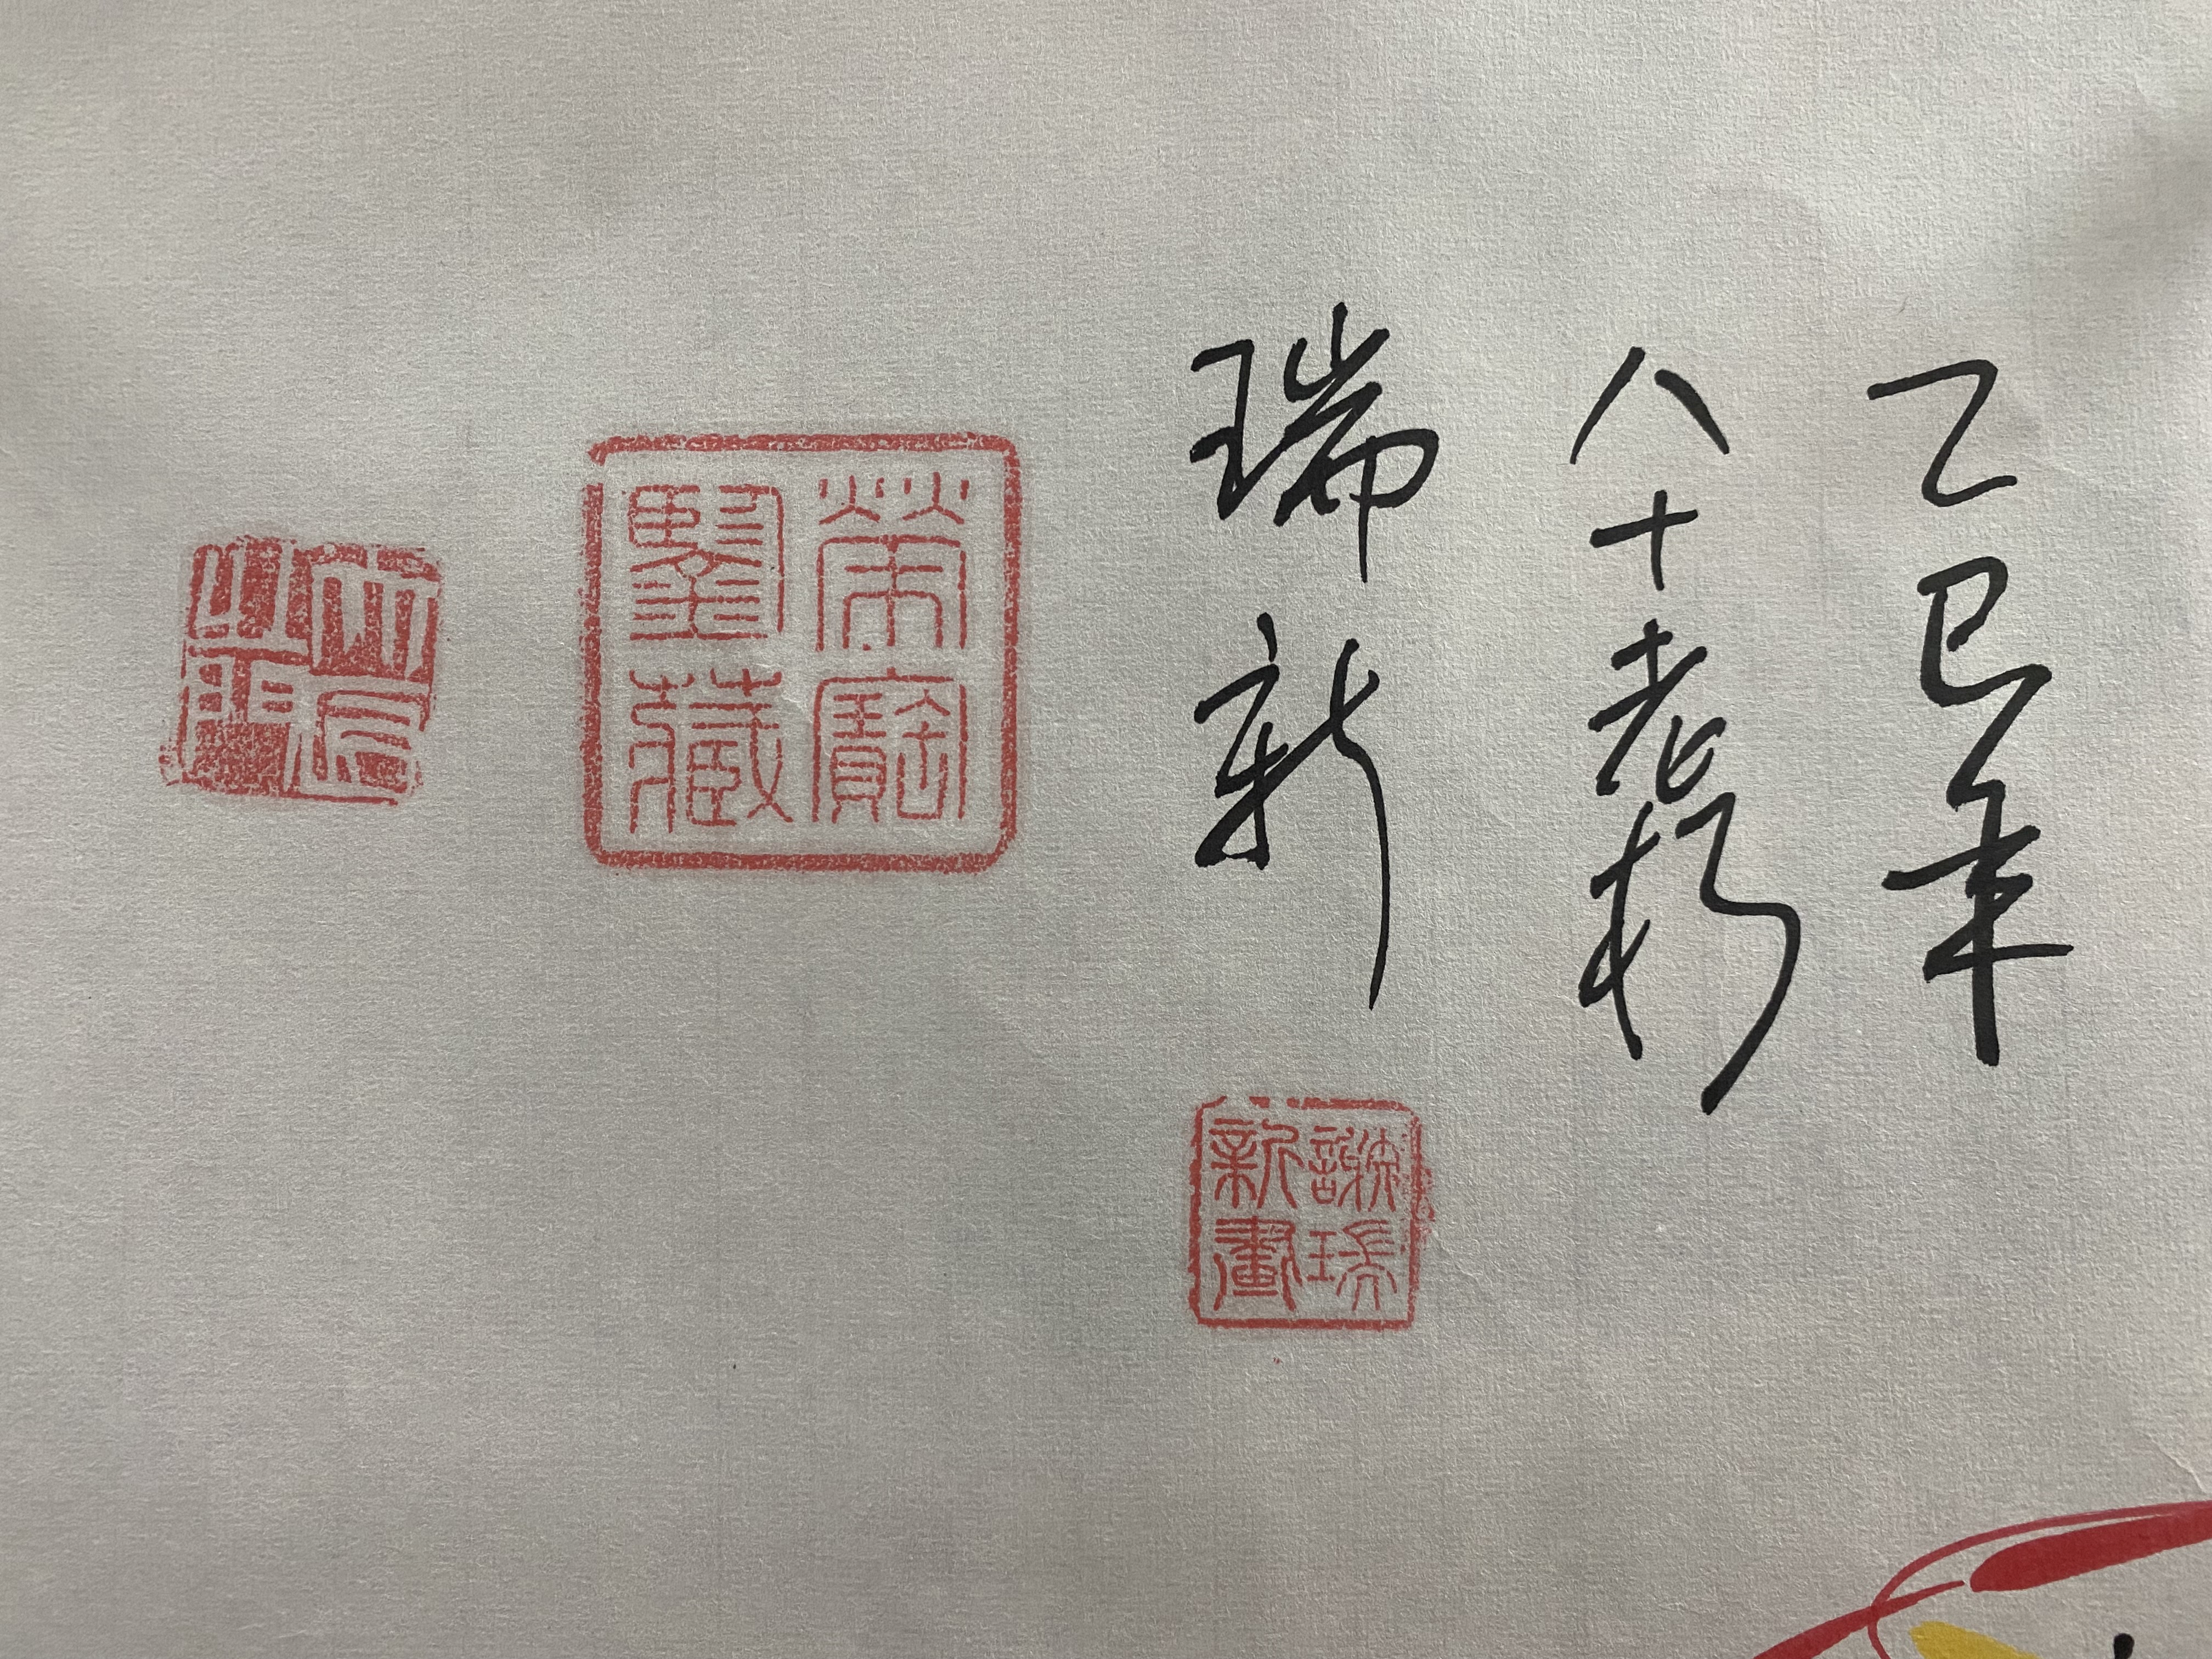 乙巳年
八十老朽
瑞新
謝瑞新畫
榮寶鑒藏